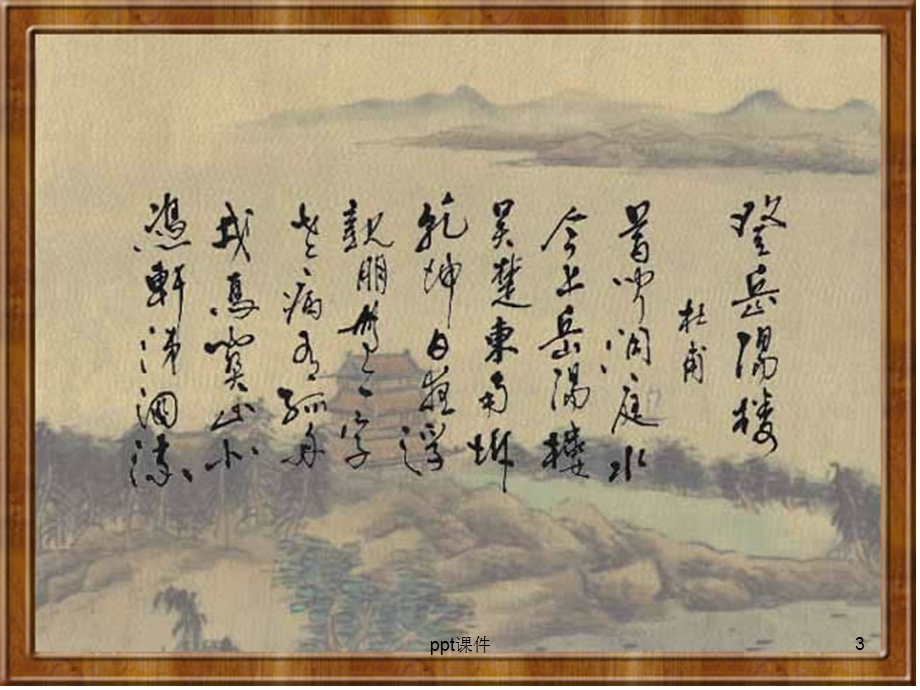 登岳阳楼
杜甫
昔闻洞庭水
今上岳阳楼
吴楚东南坼
乾坤日夜浮
亲朋无一字
老病有孤舟
戎马关山北
凭轩涕泗流
ppt课件
3